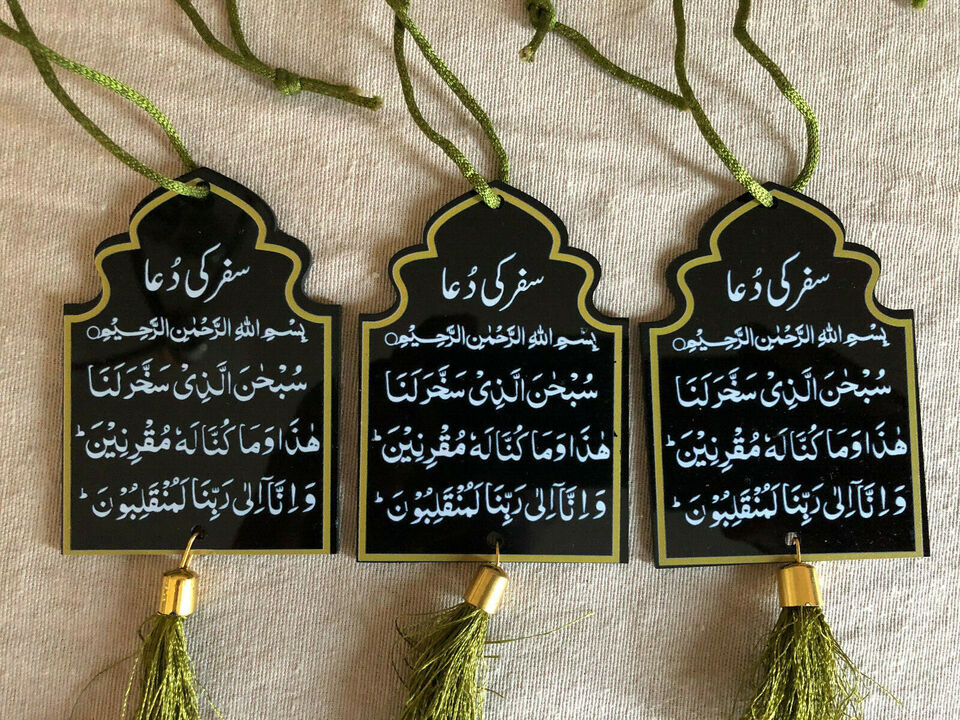 سفر کی دُعا
بِسْمِ اللّٰهِ الرَّحْمٰنِ الرَّحِیْمِ○
سُبْحٰنَ الَّذِیْ سَخَّرَ لَنَا
هٰذَا وَمَا کُنَّا لَهٗ مُقْرِنِیْنَ ؕ
وَ اِنَّاۤ اِلٰی رَبِّنَا لَمُنْقَلِبُوْنَ ؕ
سفر کی دُعا
بِسْمِ اللّٰهِ الرَّحْمٰنِ الرَّحِیْمِ○
سُبْحٰنَ الَّذِیْ سَخَّرَ لَنَا
هٰذَا وَمَا کُنَّا لَهٗ مُقْرِنِیْنَ ؕ
وَ اِنَّاۤ اِلٰی رَبِّنَا لَمُنْقَلِبُوْنَ ؕ
سفر کی دُعا
بِسْمِ اللّٰهِ الرَّحْمٰنِ الرَّحِیْمِ○
سُبْحٰنَ الَّذِیْ سَخَّرَ لَنَا
هٰذَا وَمَا کُنَّا لَهٗ مُقْرِنِیْنَ ؕ
وَ اِنَّاۤ اِلٰی رَبِّنَا لَمُنْقَلِبُوْنَ ؕ